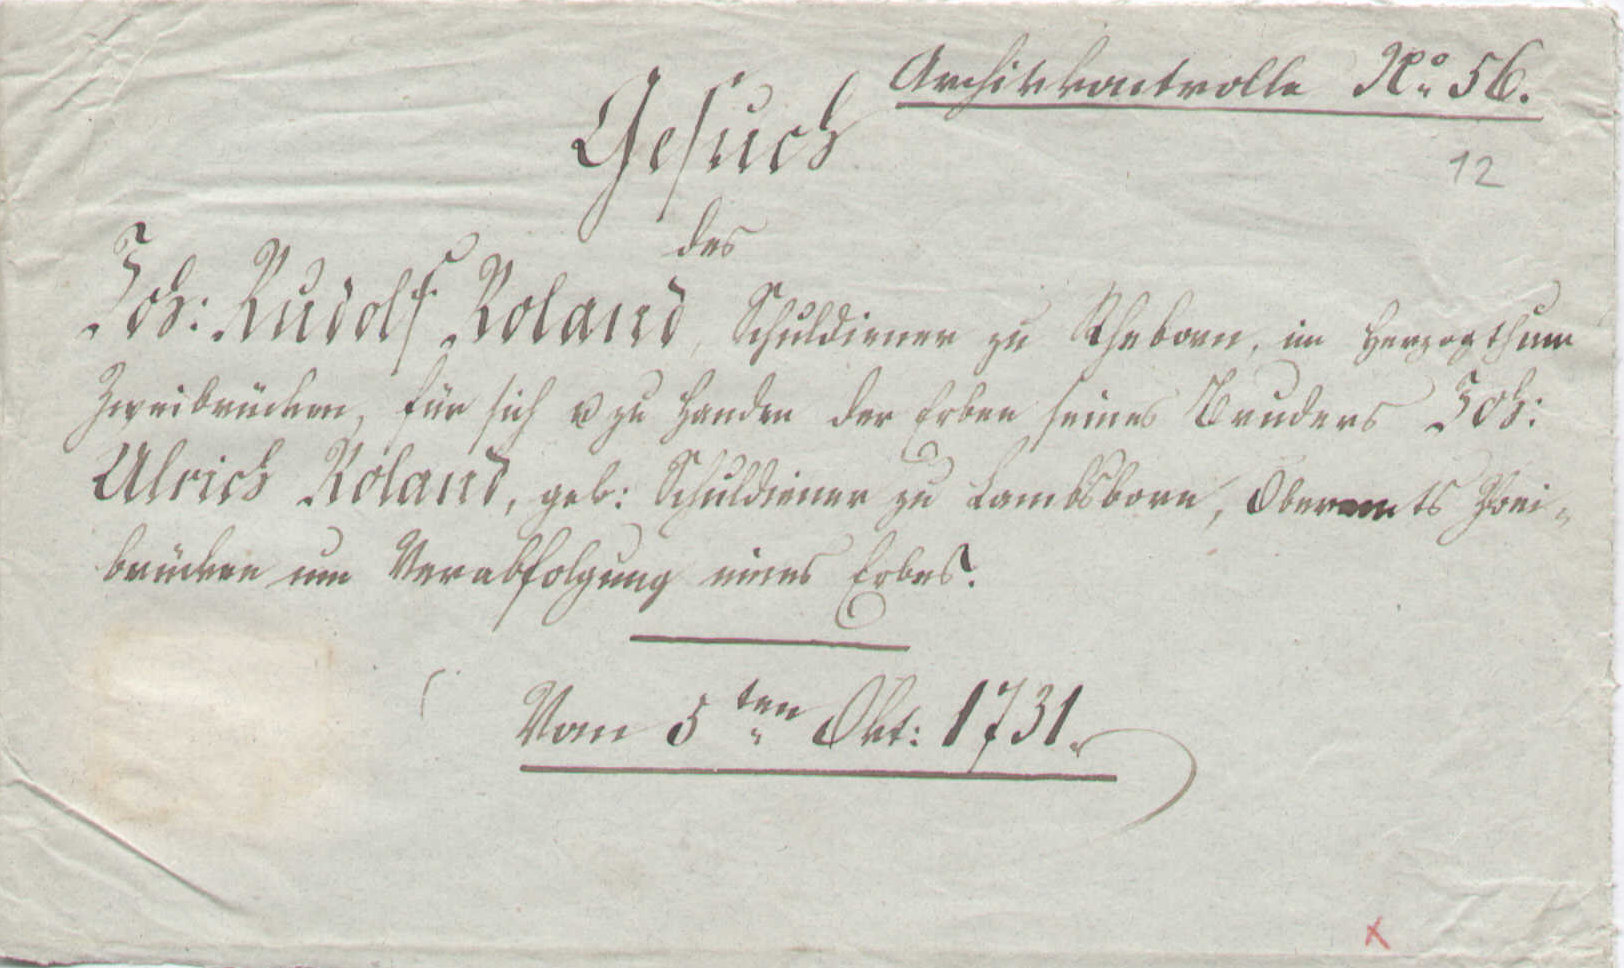 Archivkontrolle No. 56.
12
Gesuch
des
Joh: Rudolf Roland, Schuldiener zu Rheborn, im Herzogthum
Zweibrücken, für sich u zu Handen der Erben seines Bruders Joh:
Ulrich Roland, geb: Schuldiener zu Lambsborn, Oberamts Zwei-
brücken um Verabfolgung eines Erbes.
Vom 5ten Okt: 1731.